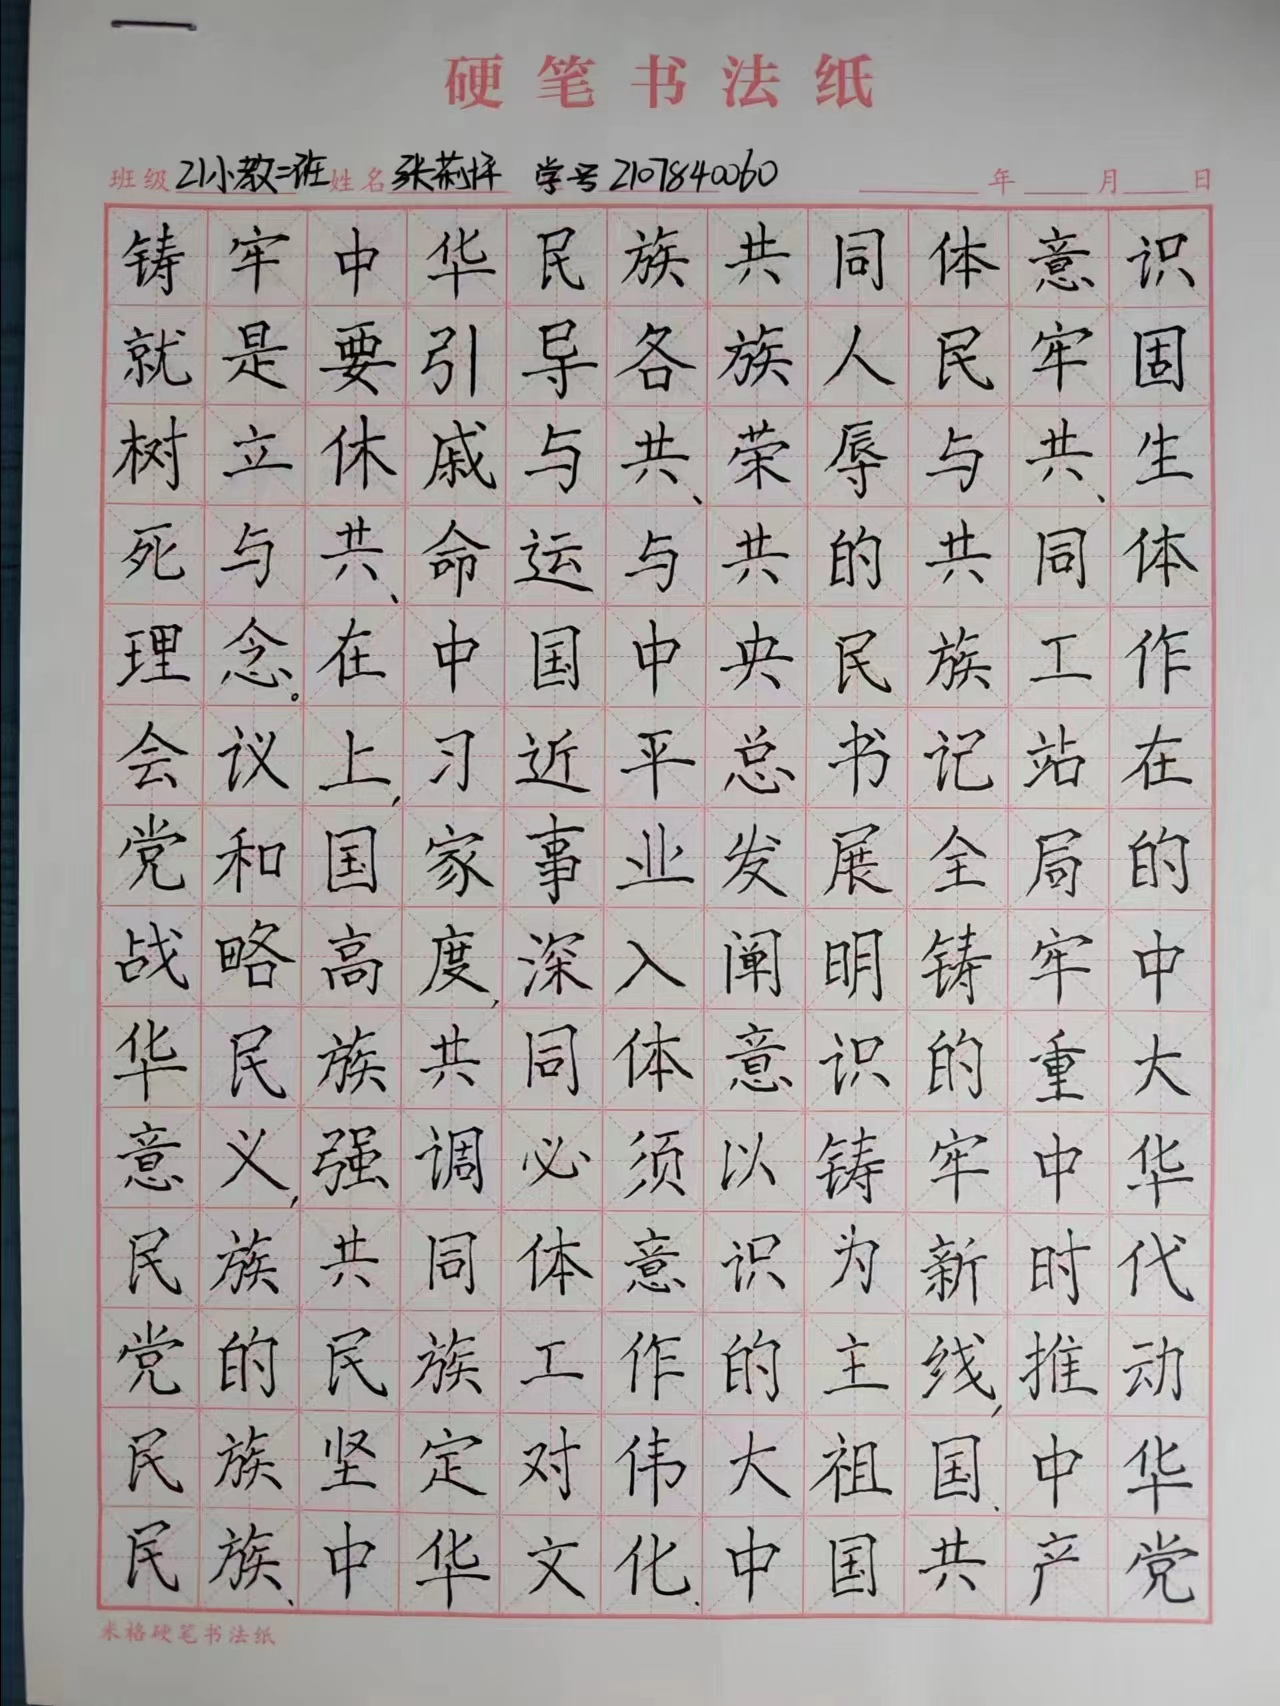 硬笔书法纸
班级 21小教二班 姓名 张莉坪 学号 2107840060 年 月 日
铸牢中华民族共同体意识
就是要引导各族人民牢固
树立休戚与共、荣辱与共、生
死与共、命运与共的共同体
理念。在中国中央民族工作
会议上,习近平总书记站在
党和国家事业发展全局的
战略高度,深入阐明铸牢中
华民族共同体意识的重大
意义,强调必须以铸牢中华
民族共同体意识为新时代
党的民族工作的主线,推动
民族坚定对伟大祖国、中华
民族、中华文化、中国共产党
米格硬笔书法纸